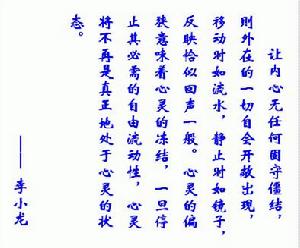 让内心无任何固守僵结，
则外在的一切自会开敞出现，
移动时如流水，静止时如镜子，
反映恰似回声一般。心灵的偏
狭意味着心灵的冻结，一旦停
止其必需的自由流动性，心灵
将不再是真正地处于心灵的状
态。
——李小龙